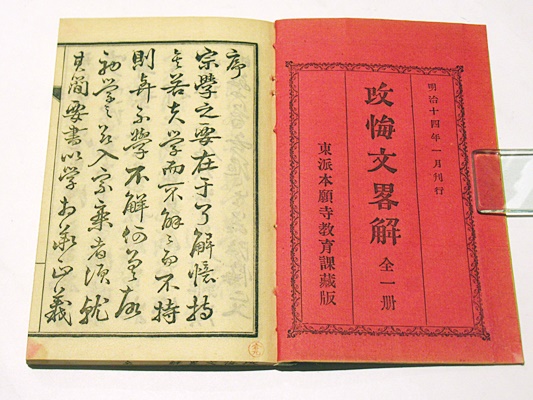 明治十四年一月刊行
改悔文畧解 全一册
東派本願寺教育課藏版
序
宗學之要在于了解憶持
若夫學而不解解而不持
則與不學不解何異故
初學之入宗乘者須就
其簡要書以學義